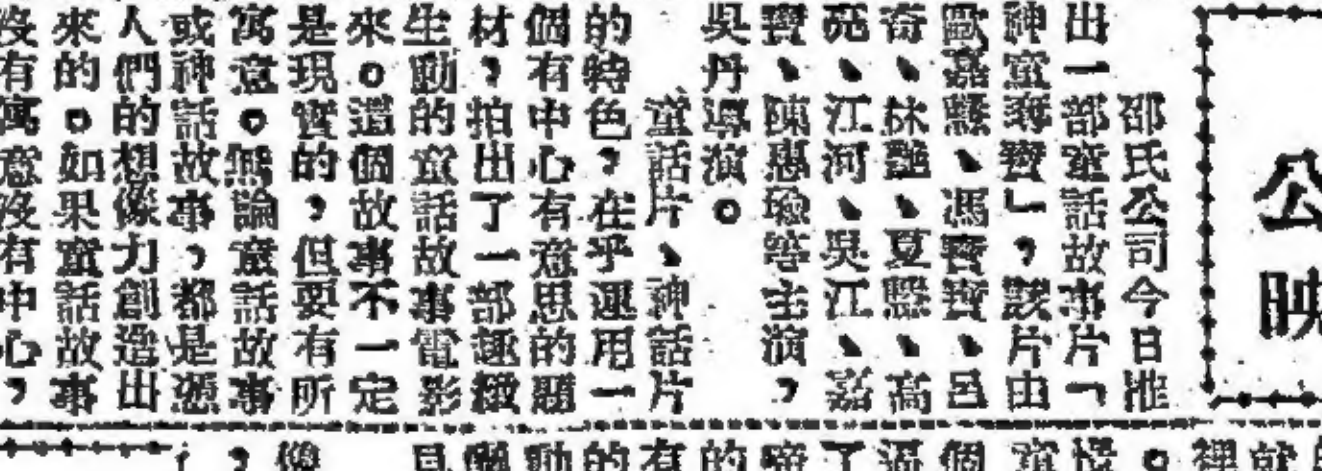 公映
邵氏公司今日推
出一部童話故事片「
神童尋寶」，該片由
歐嘉慧、馮寶寶、呂
奇、林艷、夏慧、高
亮、江河、吳江、嘉
寶、陳惠瑜等主演，
吳丹導演。
童話片、神話片
的特色，在乎運用一
個有中心有意思的題
材，拍出了一部趣緻
生動的童話故事電影
來。這個故事不一定
是現實的，但要有所
寓意。無論童話故事
或神話故事，都是憑
人們的想像力創造出
來的。如果童話故事
沒有寓意沒有中心，